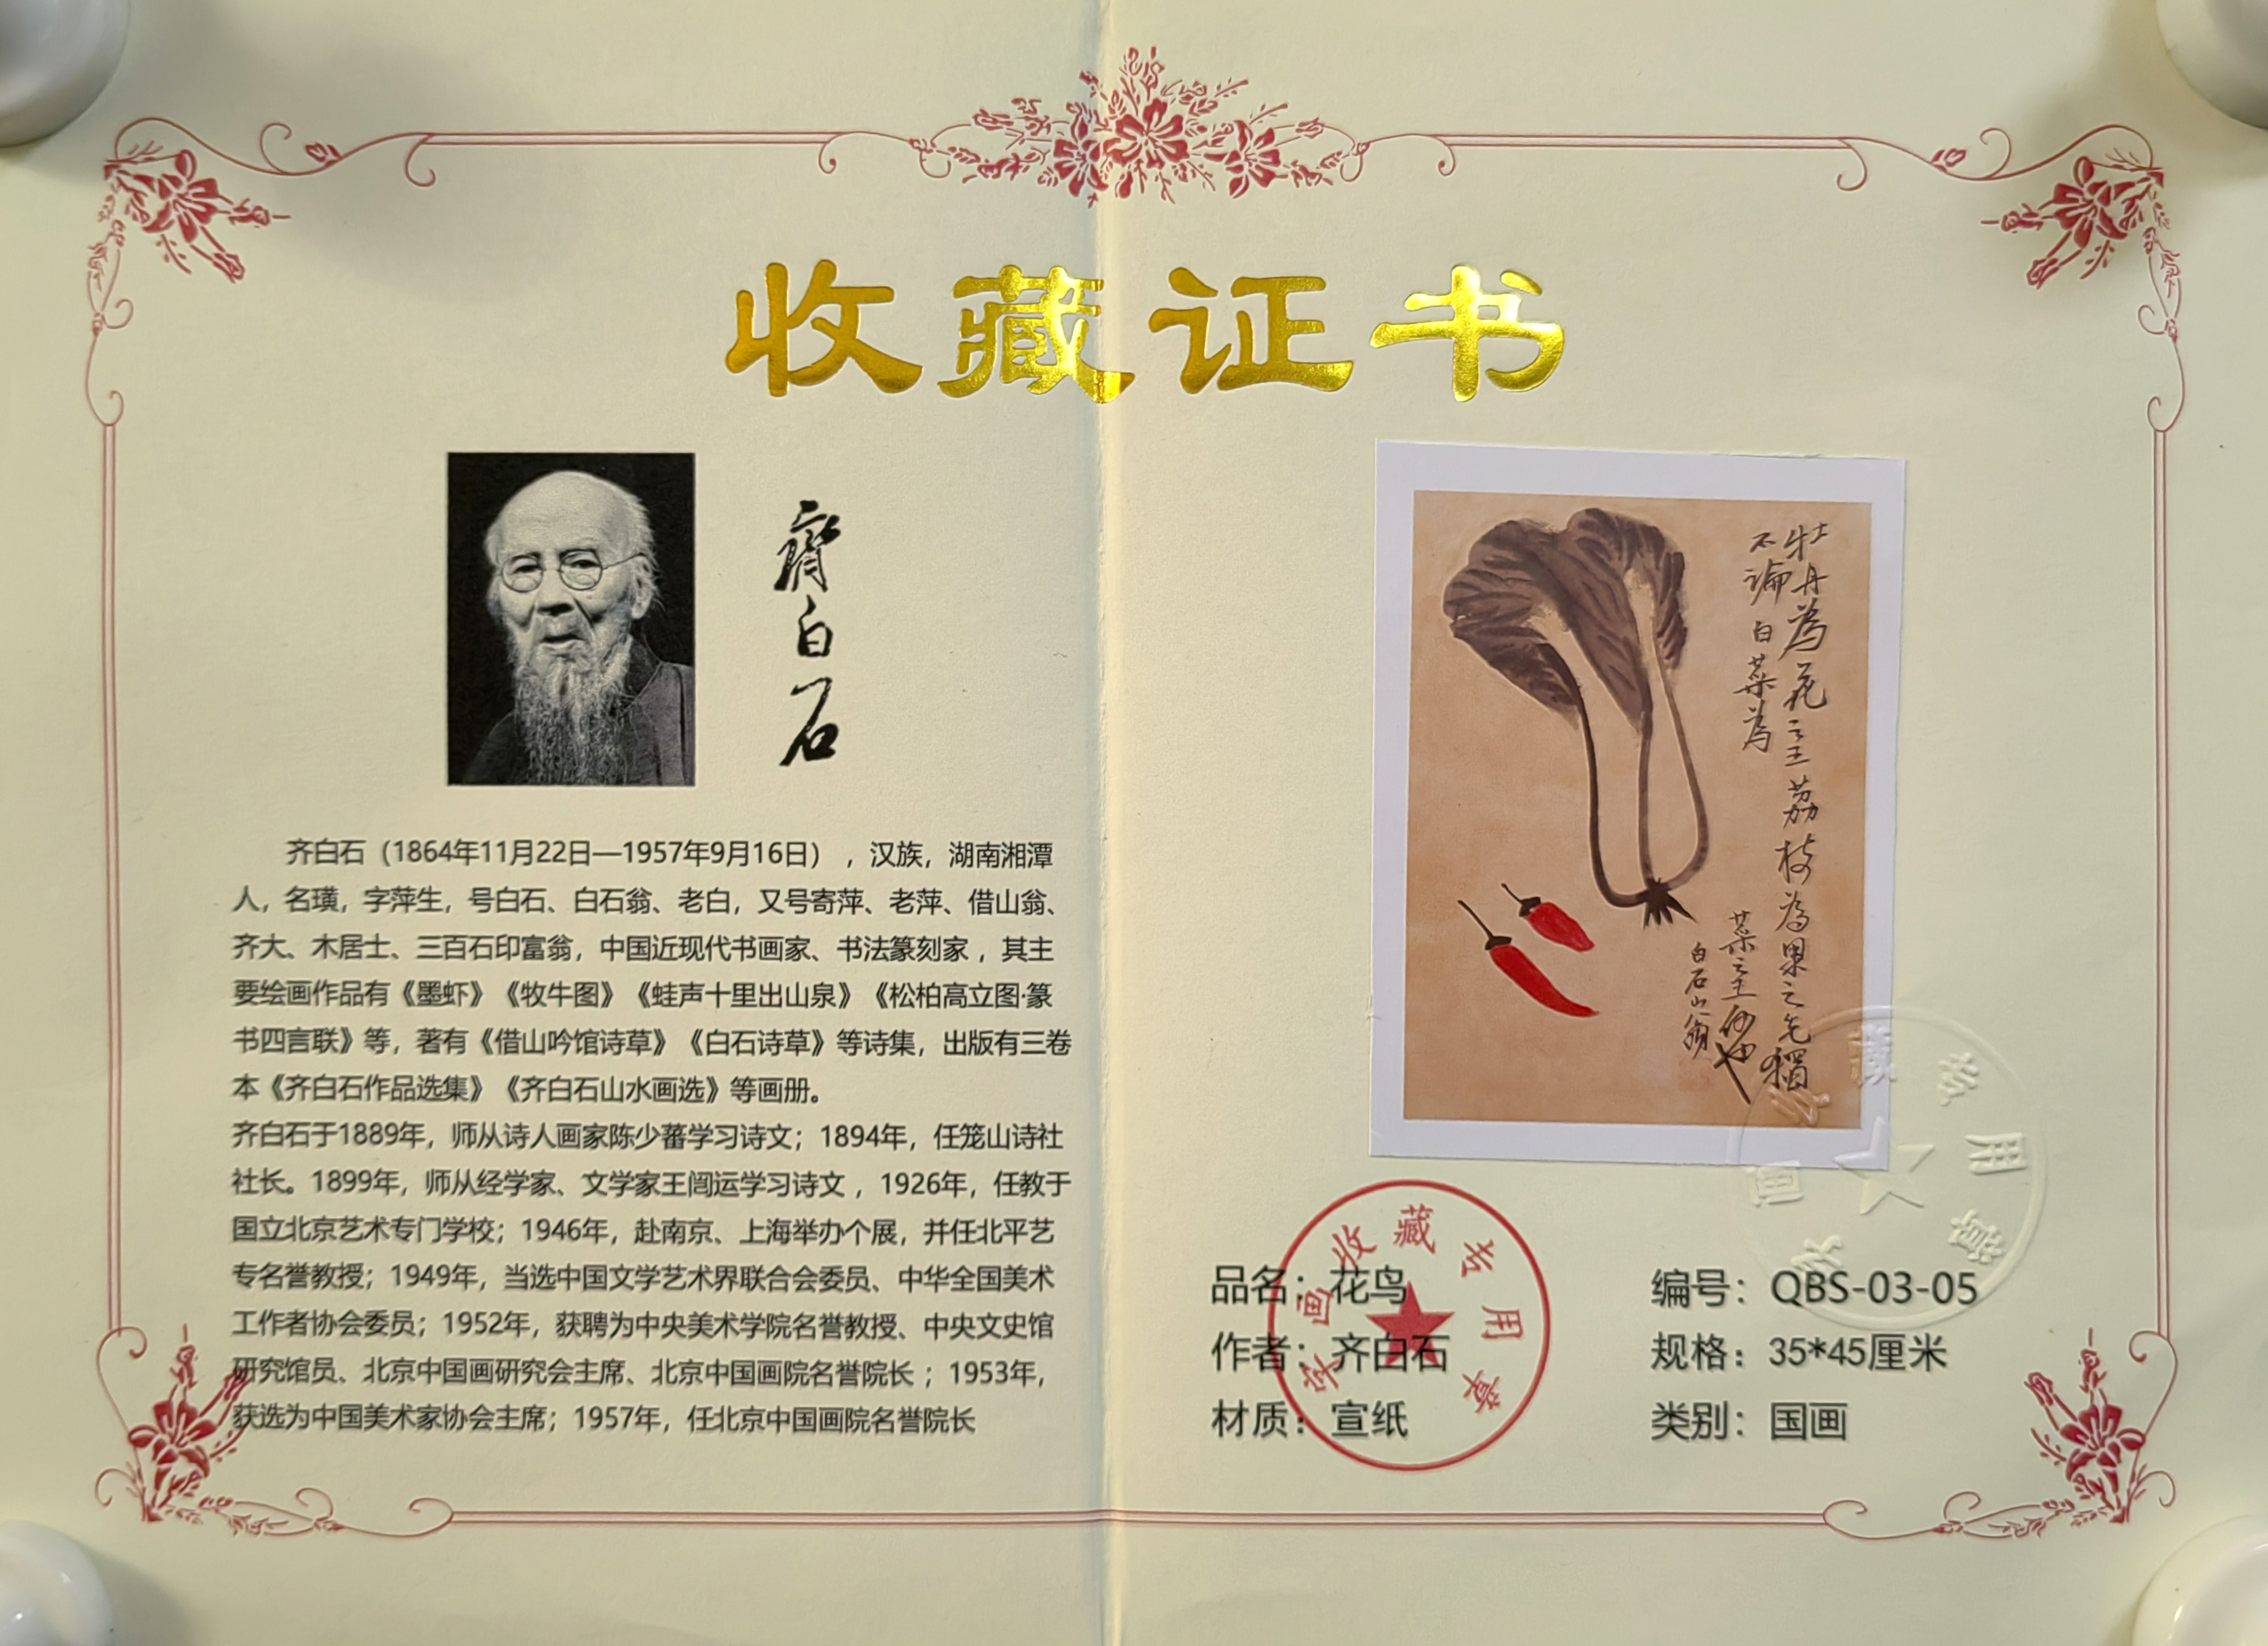 收藏证书
齐白石
齐白石（1864年11月22日—1957年9月16日），汉族，湖南湘潭
人，名璜，字萍生，号白石、白石翁、老白，又号寄萍、老萍、借山翁、
齐大、木居士、三百石印富翁，中国近现代书画家、书法篆刻家，其主
要绘画作品有《墨虾》《牧牛图》《蛙声十里出山泉》《松柏高立图·篆
书四言联》等，著有《借山吟馆诗草》《白石诗草》等诗集，出版有三卷
本《齐白石作品选集》《齐白石山水画选》等画册。
齐白石于1889年，师从诗人画家陈少蕃学习诗文；1894年，任笼山诗社
社长。1899年，师从经学家、文学家王闿运学习诗文，1926年，任教于
国立北京艺术专门学校；1946年，赴南京、上海举办个展，并任北平艺
专名誉教授；1949年，当选中国文学艺术界联合会委员、中华全国美术
工作者协会委员；1952年，获聘为中央美术学院名誉教授、中央文史馆
研究馆员、北京中国画研究会主席、北京中国画院名誉院长；1953年，
获选为中国美术家协会主席；1957年，任北京中国画院名誉院长
牡丹為花之王荔枝為果之先獨
不論白菜為
菜之王何也
白石山翁
品名：花鸟
作者：齐白石
材质：宣纸
编号：QBS-03-05
规格：35*45厘米
类别：国画
字画收藏专用章
字画收藏专用章